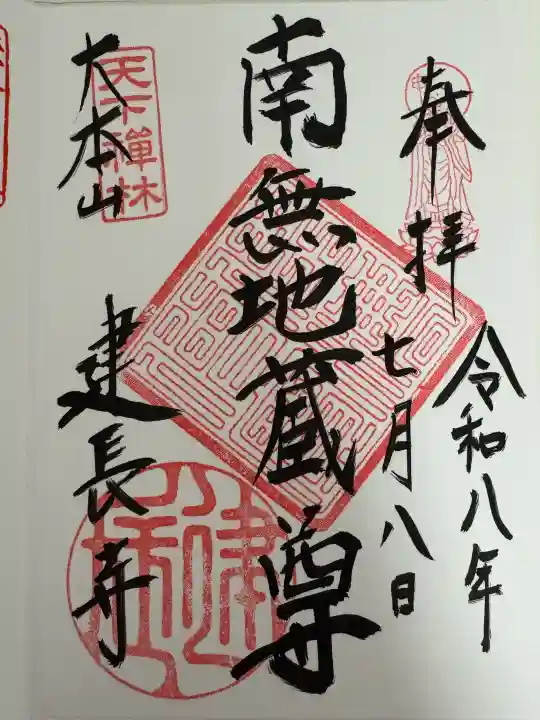 奉拝
令和八年
七月八日
南無地蔵尊
天下禅林
大本山
建長寺